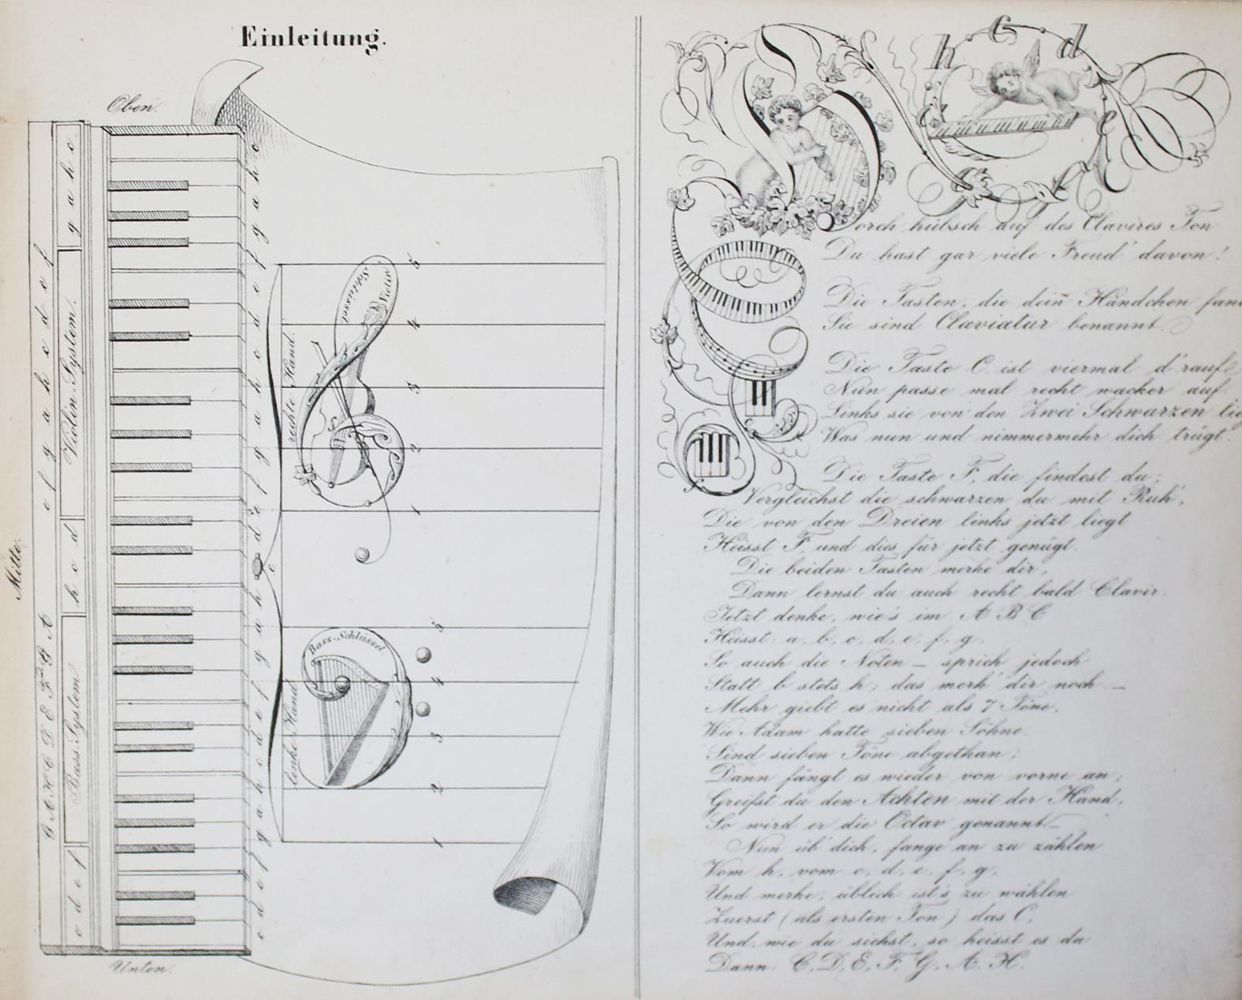 Einleitung.
Oben.
g a h c
Violin-System.
h c d
Bass-System
c d e f
e f g a h c d e f
G A H C D E F G A
Mitte.
Unten.
c d e f g a h c d e f g a h c d e f g a h c d e f g a h c
rechte Hand.
Violin
Schlüssel
5
4
3
2
1
linke Hand
Bass-Schlüssel
5
4
3
2
1
h c d
e
Horch hübsch auf des Clavieres Ton
Du hast gar viele Freud' davon!
Die Tasten, die dein Händchen fand
Sie sind Claviatur benannt.
Die Taste C ist viermal d'rauf,
Nun passe mal recht wacker auf.
Links sie von den Zwei Schwarzen
Was nun und nimmermehr dich trügt.
Die Taste F, die findest du,
Vergleichst die schwarzen du mit Ruh',
Die von den Dreien links jetzt liegt
Heisst F, und dies für jetzt genügt.
Die beiden Tasten merke dir,
Dann lernst du auch recht bald Clavir.
Jetzt denke, wie's im A B C
Heisst: a, b, c, d, e, f, g.
So auch die Noten – sprich jedoch
Statt b stets h; das merk' dir noch –
Mehr giebt es nicht als 7 Töne,
Wie Adam hatte sieben Söhne.
Sind sieben Töne abgethan,
Dann fängt es wieder von vorne an;
Greifst du den Achten mit der Hand,
So wird er die Octav genannt.–
Nun üb' dich, fange an zu zählen
Vom h, vom c, d, e, f, g,
Und merke, üblich ist's zu wählen
Zuerst (als ersten Ton) das C,
Und, wie du siehst, so heisst es da
Dann: C, D, E, F, G, A, H.